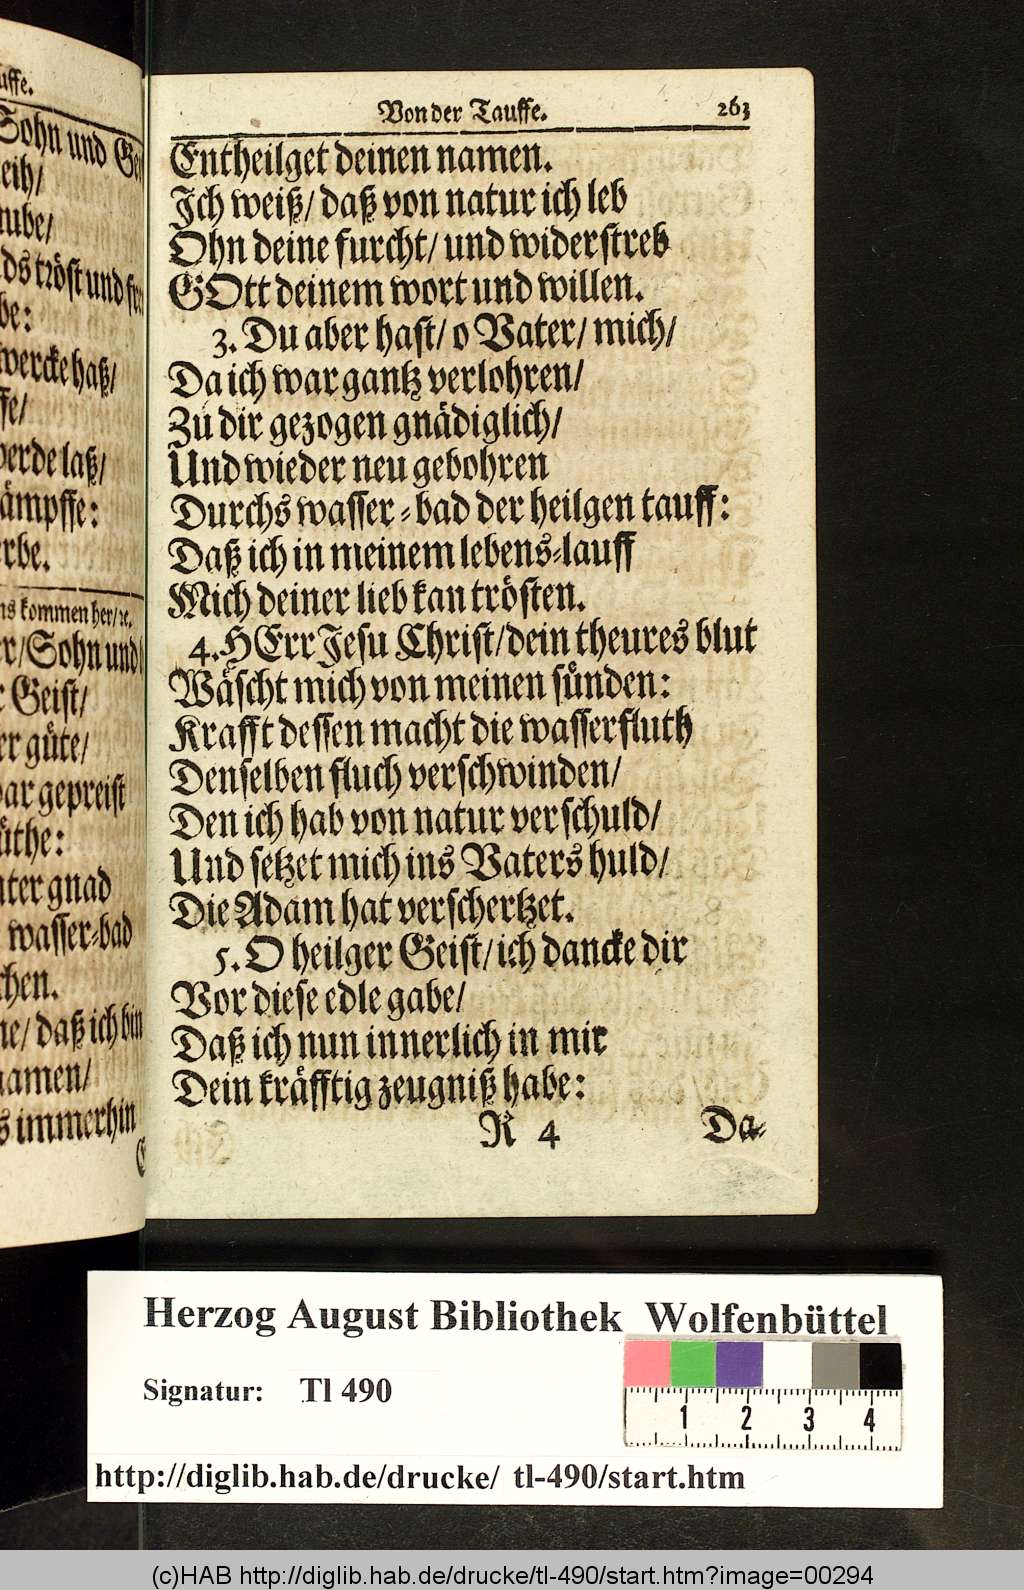 uffe.
Sohn und
eih/
aube/
ds tröst und
be:
wercke haß/
ffe/
werde laß/
kämpffe:
erbe.
ns kommen her/ ꝛc.
er/ Sohn und
r Geist/
er güte/
bar gepreist
üthe:
ter gnad
wasser-bad
chen.
ne/ daß ich bin
namen/
s immerhin
Von der Tauffe. 263
Entheilget deinen namen.
Ich weiß/ daß von natur ich leb
Ohn deine furcht/ und widerstreb
GOtt deinem wort und willen.
3. Du aber hast/ o Vater/ mich/
Da ich war gantz verlohren/
Zu dir gezogen gnädiglich/
Und wieder neu gebohren
Durchs wasser-bad der heilgen tauff:
Daß ich in meinem lebens-lauff
Mich deiner lieb kan trösten.
4. HErr Jesu Christ/ dein theures blut
Wäscht mich von meinen sünden:
Krafft dessen macht die wasserfluth
Denselben fluch verschwinden/
Den ich hab von natur verschuld/
Und setzet mich ins Vaters huld/
Die Adam hat verschertzet.
5. O heilger Geist/ ich dancke dir
Vor diese edle gabe/
Daß ich nun innerlich in mir
Dein kräfftig zeugniß habe:
R 4 Da-
Herzog August Bibliothek Wolfenbüttel
Signatur: Tl 490
1 2 3 4
http://diglib.hab.de/drucke/ tl-490/start.htm
(c)HAB http://diglib.hab.de/drucke/tl-490/start.htm?image=00294